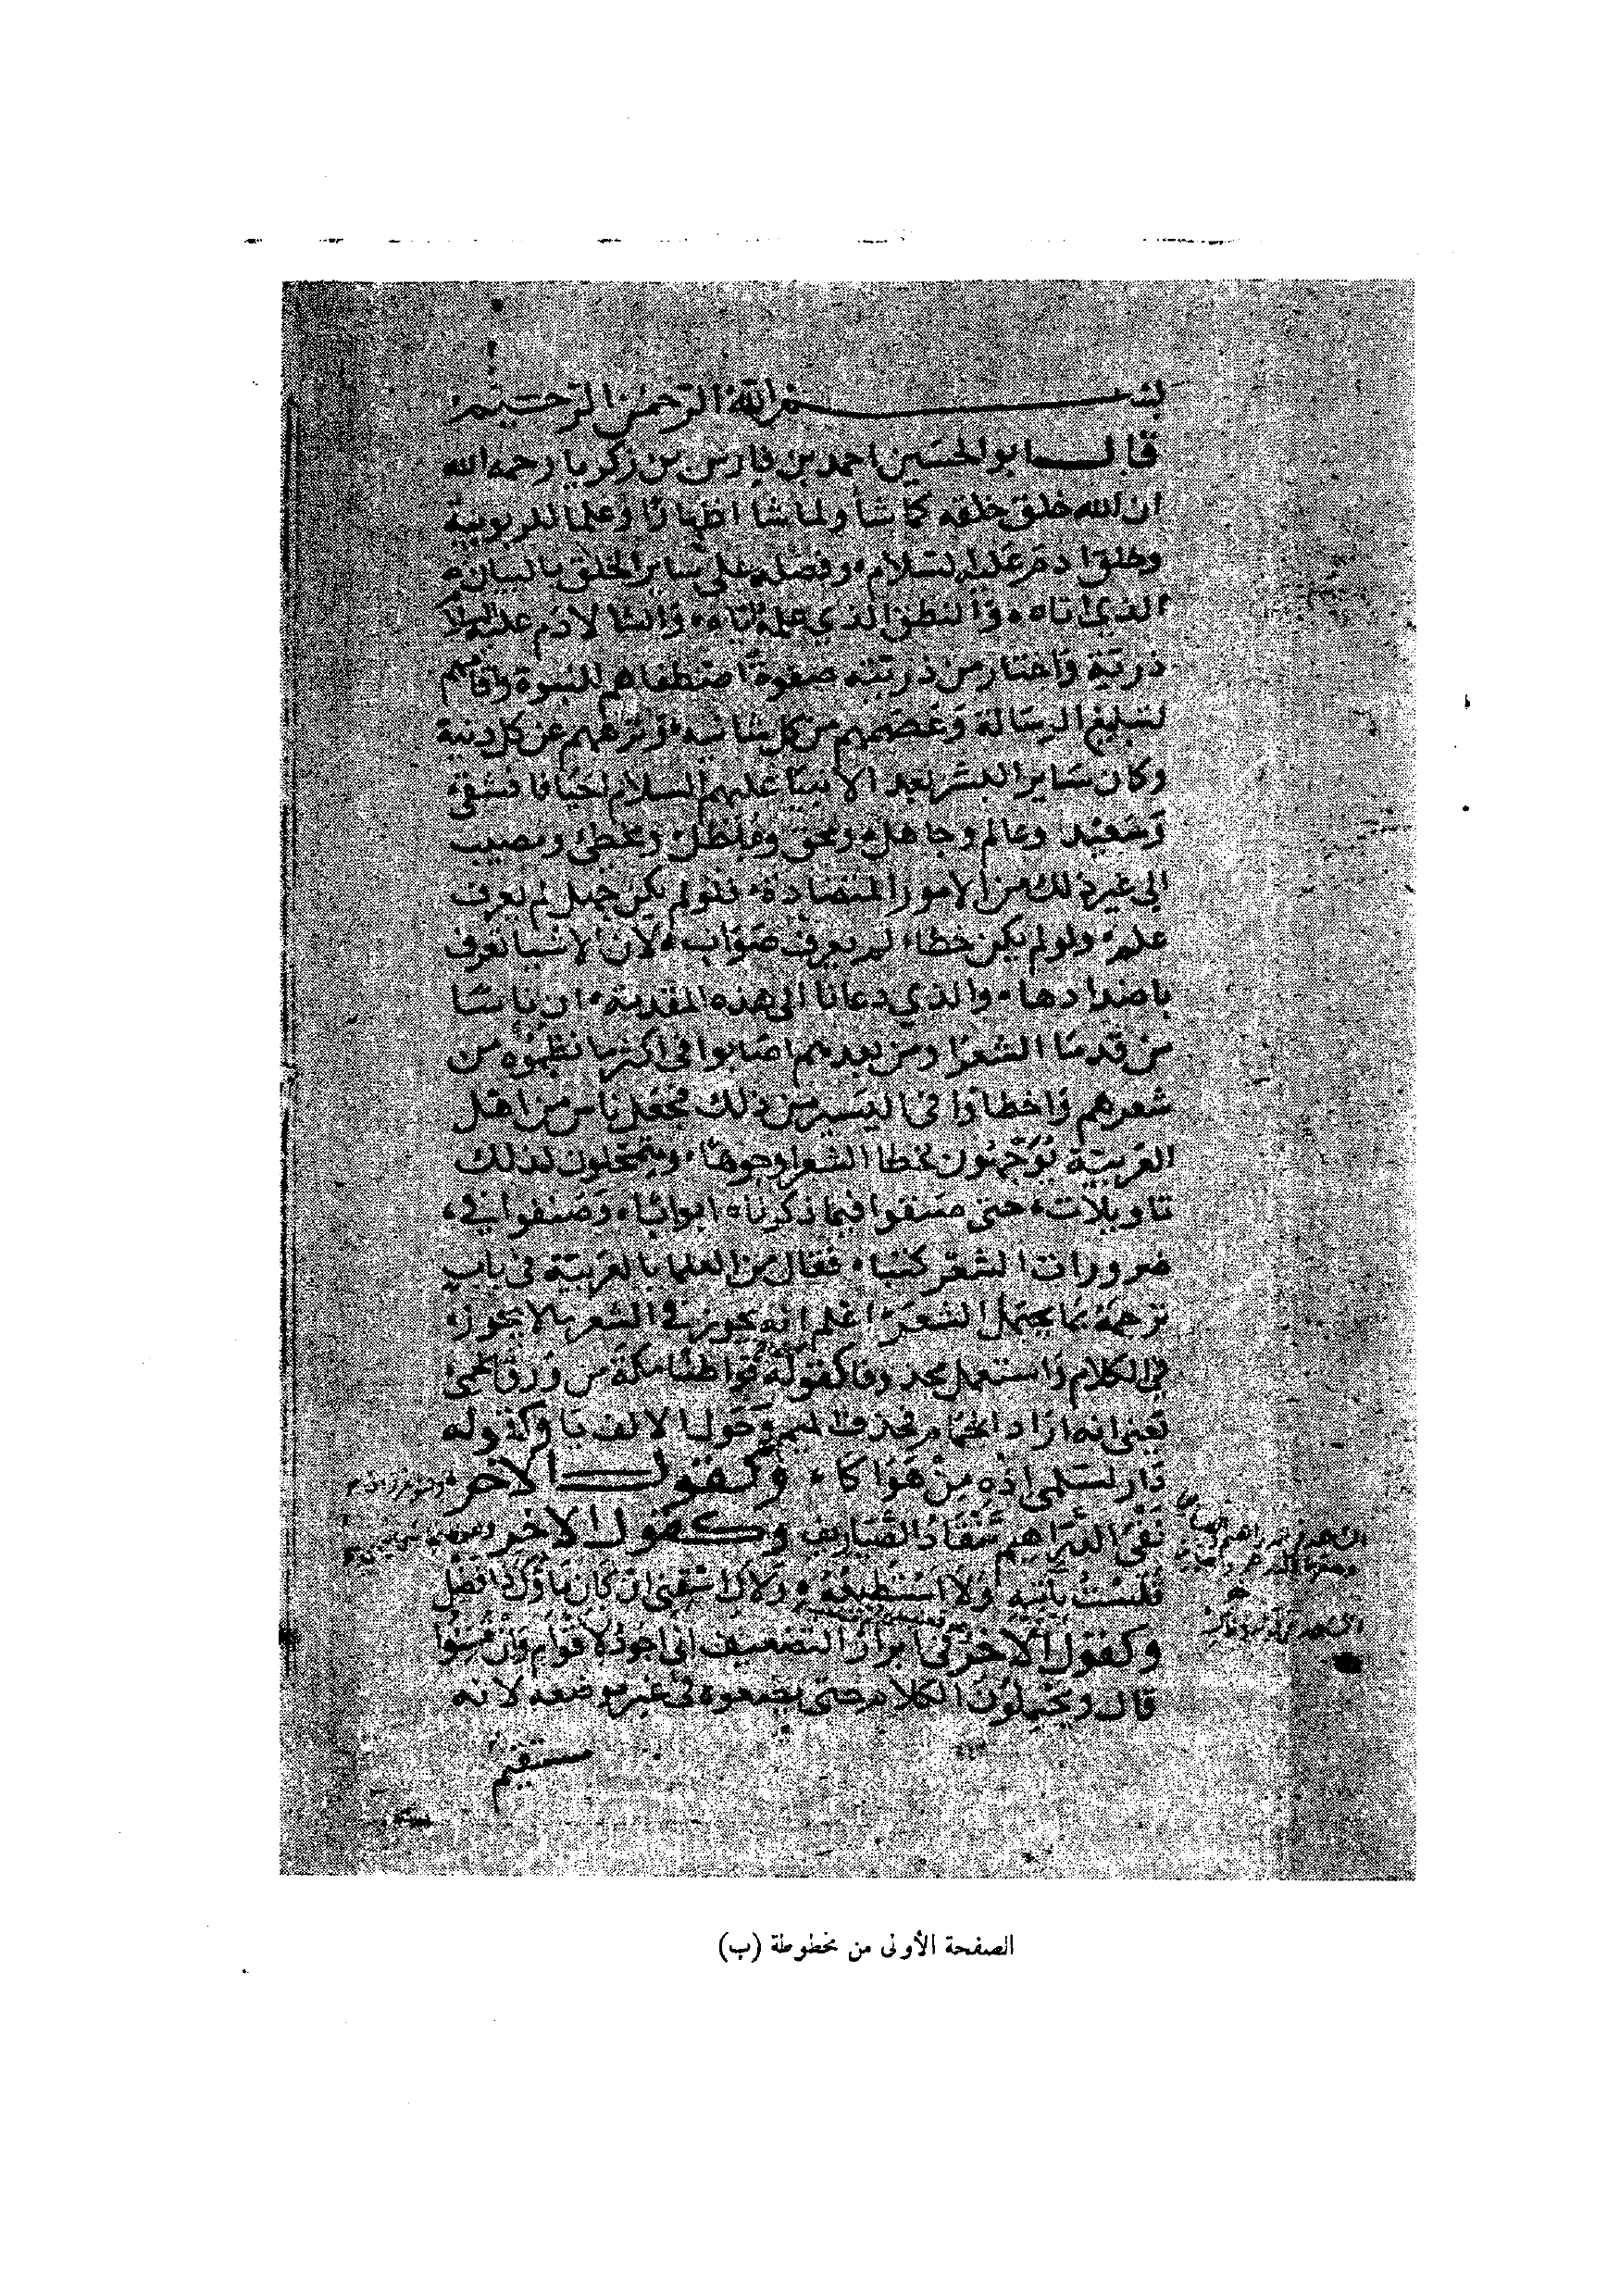 بسم الله الرحمن الرحيم
قال ابو الحسين احمد بن فارس بن زكريا رحمه الله
ان الله خلق خلقه كما شا ولما شا اظهارا وعلما للربوبية
وخلق ادم عليه السلام وفضله على ساير الخلق بالبيان
الذي اتاه والنطق الذي علمه اياه وانشا لادم عليه السلام
ذرية واختار من ذريته صفوة اصطفاهم للنبوة واقامهم
لتبليغ الرسالة وعصمهم من كل شائبة ونزههم عن كل دنية
وكان ساير البشر بعد الانبيا عليهم السلام اخيافا فشقي
وسعيد وعالم وجاهل ومحق ومبطل ومخطئ ومصيب
الى غير ذلك من الامور المتضادة فلو لم يكن جهل لم يعرف
علم ولو لم يكن خطا لم يعرف صواب لان الاشيا تعرف
باضدادها والذي دعانا الى هذه المقدمة ان ناسا
من قدما الشعرا ومن بعدهم اصابوا في اكثر ما نظموه من
شعرهم واخطاوا في اليسير من ذلك فجعل ناس من اهل
العربية يوجهون لخطا الشعرا وجوها ويتمحلون لذلك
تاويلات حتى صنفوا فيما ذكرناه ابوابا وصنفوا في
ضرورات الشعر كتبا فقال من العلما بالعربية في باب
ترجمة بما يحتمل الشعر اعلم انه يجوز في الشعر ما لا يجوز
في الكلام واستعمل محذوفا كقوله قواطنا مكة من ورق الحمى
يعني انه اراد الحمام فحذف الميم وحول الالف يا وكقوله
دار لسلمى اذه من هواكا وكقول الاخر
نفي الدراهيم تنقاد الصياريف وكقول الاخر
فلست بآتيه ولا استطيعه ولاك اسقني ان كان ماؤك ذا فضل
وكقول الاخر في ابراز التضعيف اني اجود لاقوام وان ضننوا
قال ويحتملون الكلام حتى يضعوه في غير موضعه لانه
مستقيم
الصفحة الأولى من مخطوطة (ب)